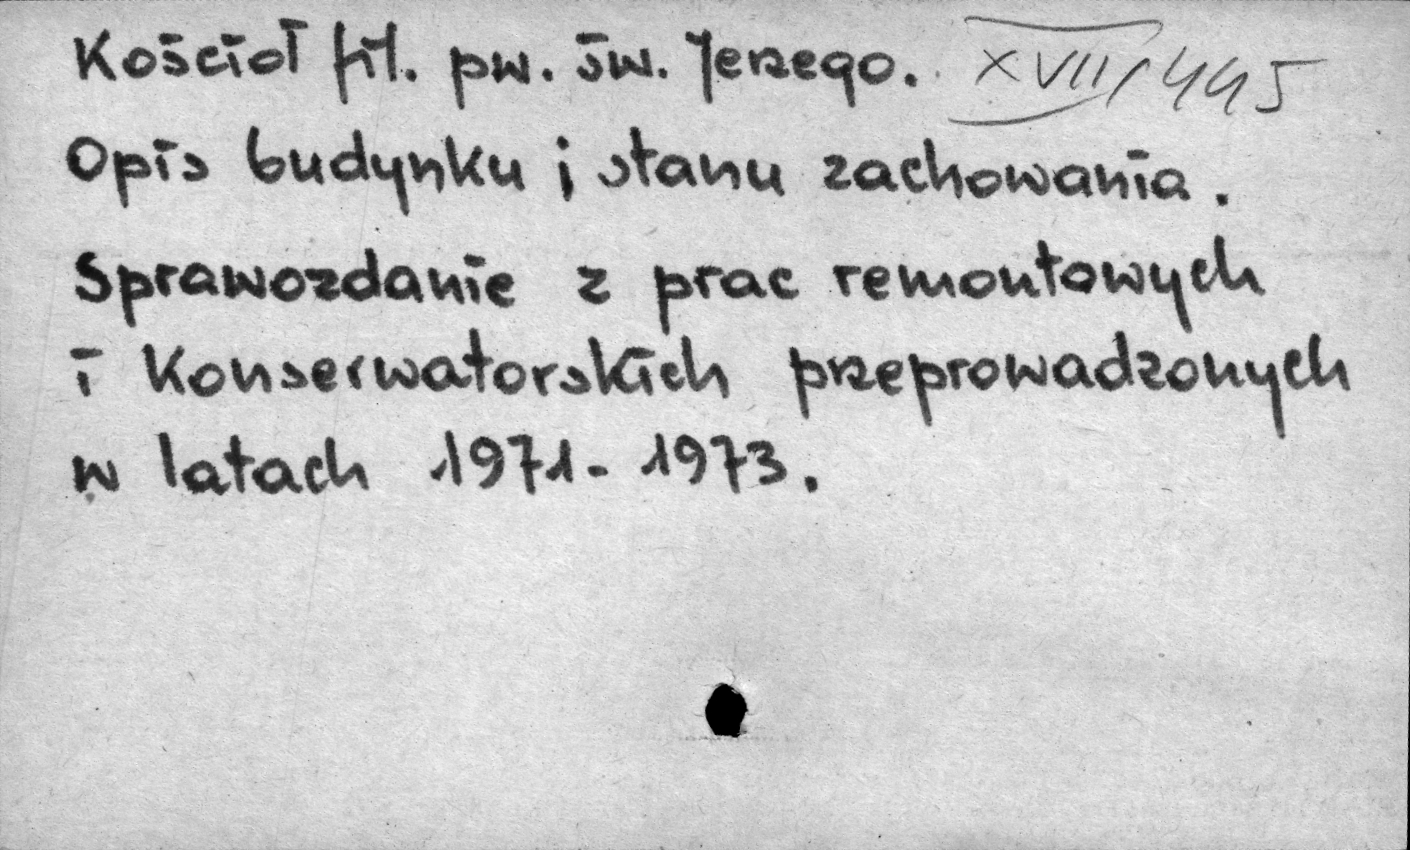 Kościoł fil. pw. św. Jerzego. XVII/445
Opis budynku i stanu zachowania.
Sprawozdanie z prac remontowych
i konserwatorskich przeprowadzonych
w latach 1971-1973.